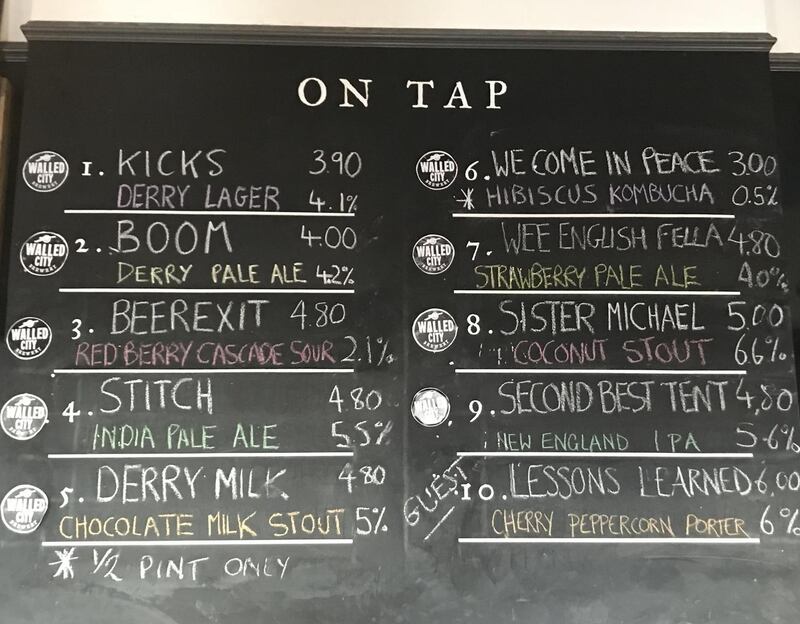 ON TAP
WALLED CITY BREWERY
1. KICKS 3.90
DERRY LAGER 4.1%
WALLED CITY BREWERY
2. BOOM 4.00
DERRY PALE ALE 4.2%
WALLED CITY BREWERY
3. BEEREXIT 4.80
RED BERRY CASCADE SOUR 2.1%
WALLED CITY BREWERY
4. STITCH 4.80
INDIA PALE ALE 5.5%
WALLED CITY BREWERY
5. DERRY MILK 4.80
CHOCOLATE MILK STOUT 5%
* 1/2 PINT ONLY
WALLED CITY BREWERY
6. WE COME IN PEACE 3.00
* HIBISCUS KOMBUCHA 0.5%
WALLED CITY BREWERY
7. WEE ENGLISH FELLA 4.80
STRAWBERRY PALE ALE 4.0%
WALLED CITY BREWERY
8. SISTER MICHAEL 5.00
COCONUT STOUT 6.6%
9. SECOND BEST TENT 4.80
NEW ENGLAND IPA 5.6%
GUEST
10. LESSONS LEARNED 6.00
CHERRY PEPPERCORN PORTER 6%